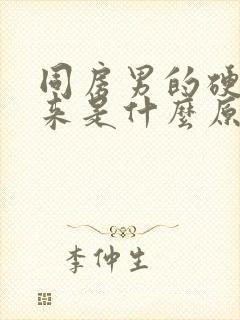 同房男的硬
来是什麼原
李仲生